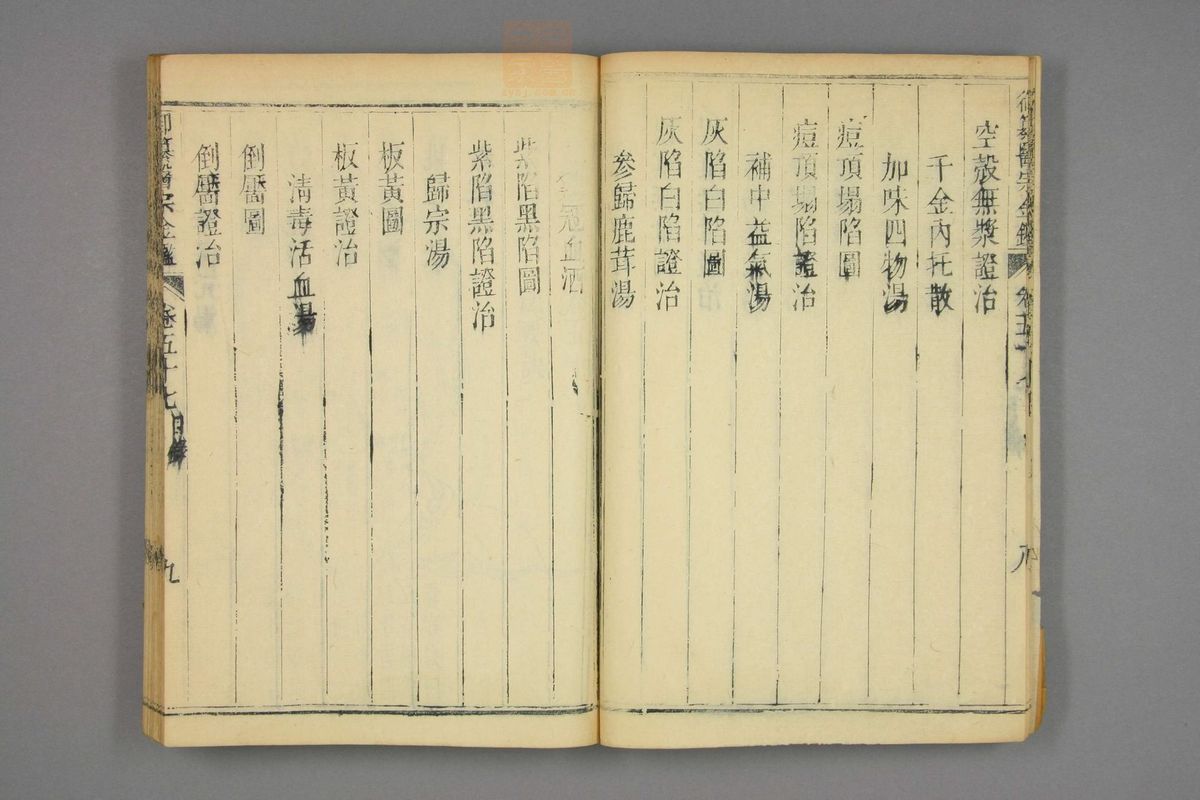 空殼無漿證治
千金內托散
加味四物湯
痘頂塌陷圖
痘頂塌陷證治
補中益氣湯
灰陷白陷圖
灰陷白陷證治
參歸鹿茸湯
血酒
紫陷黑陷圖
紫陷黑陷證治
歸宗湯
板黃圖
板黃證治
清毒活血湯
倒靨圖
倒靨證治
宗金鑑 卷五十七 目錄 九